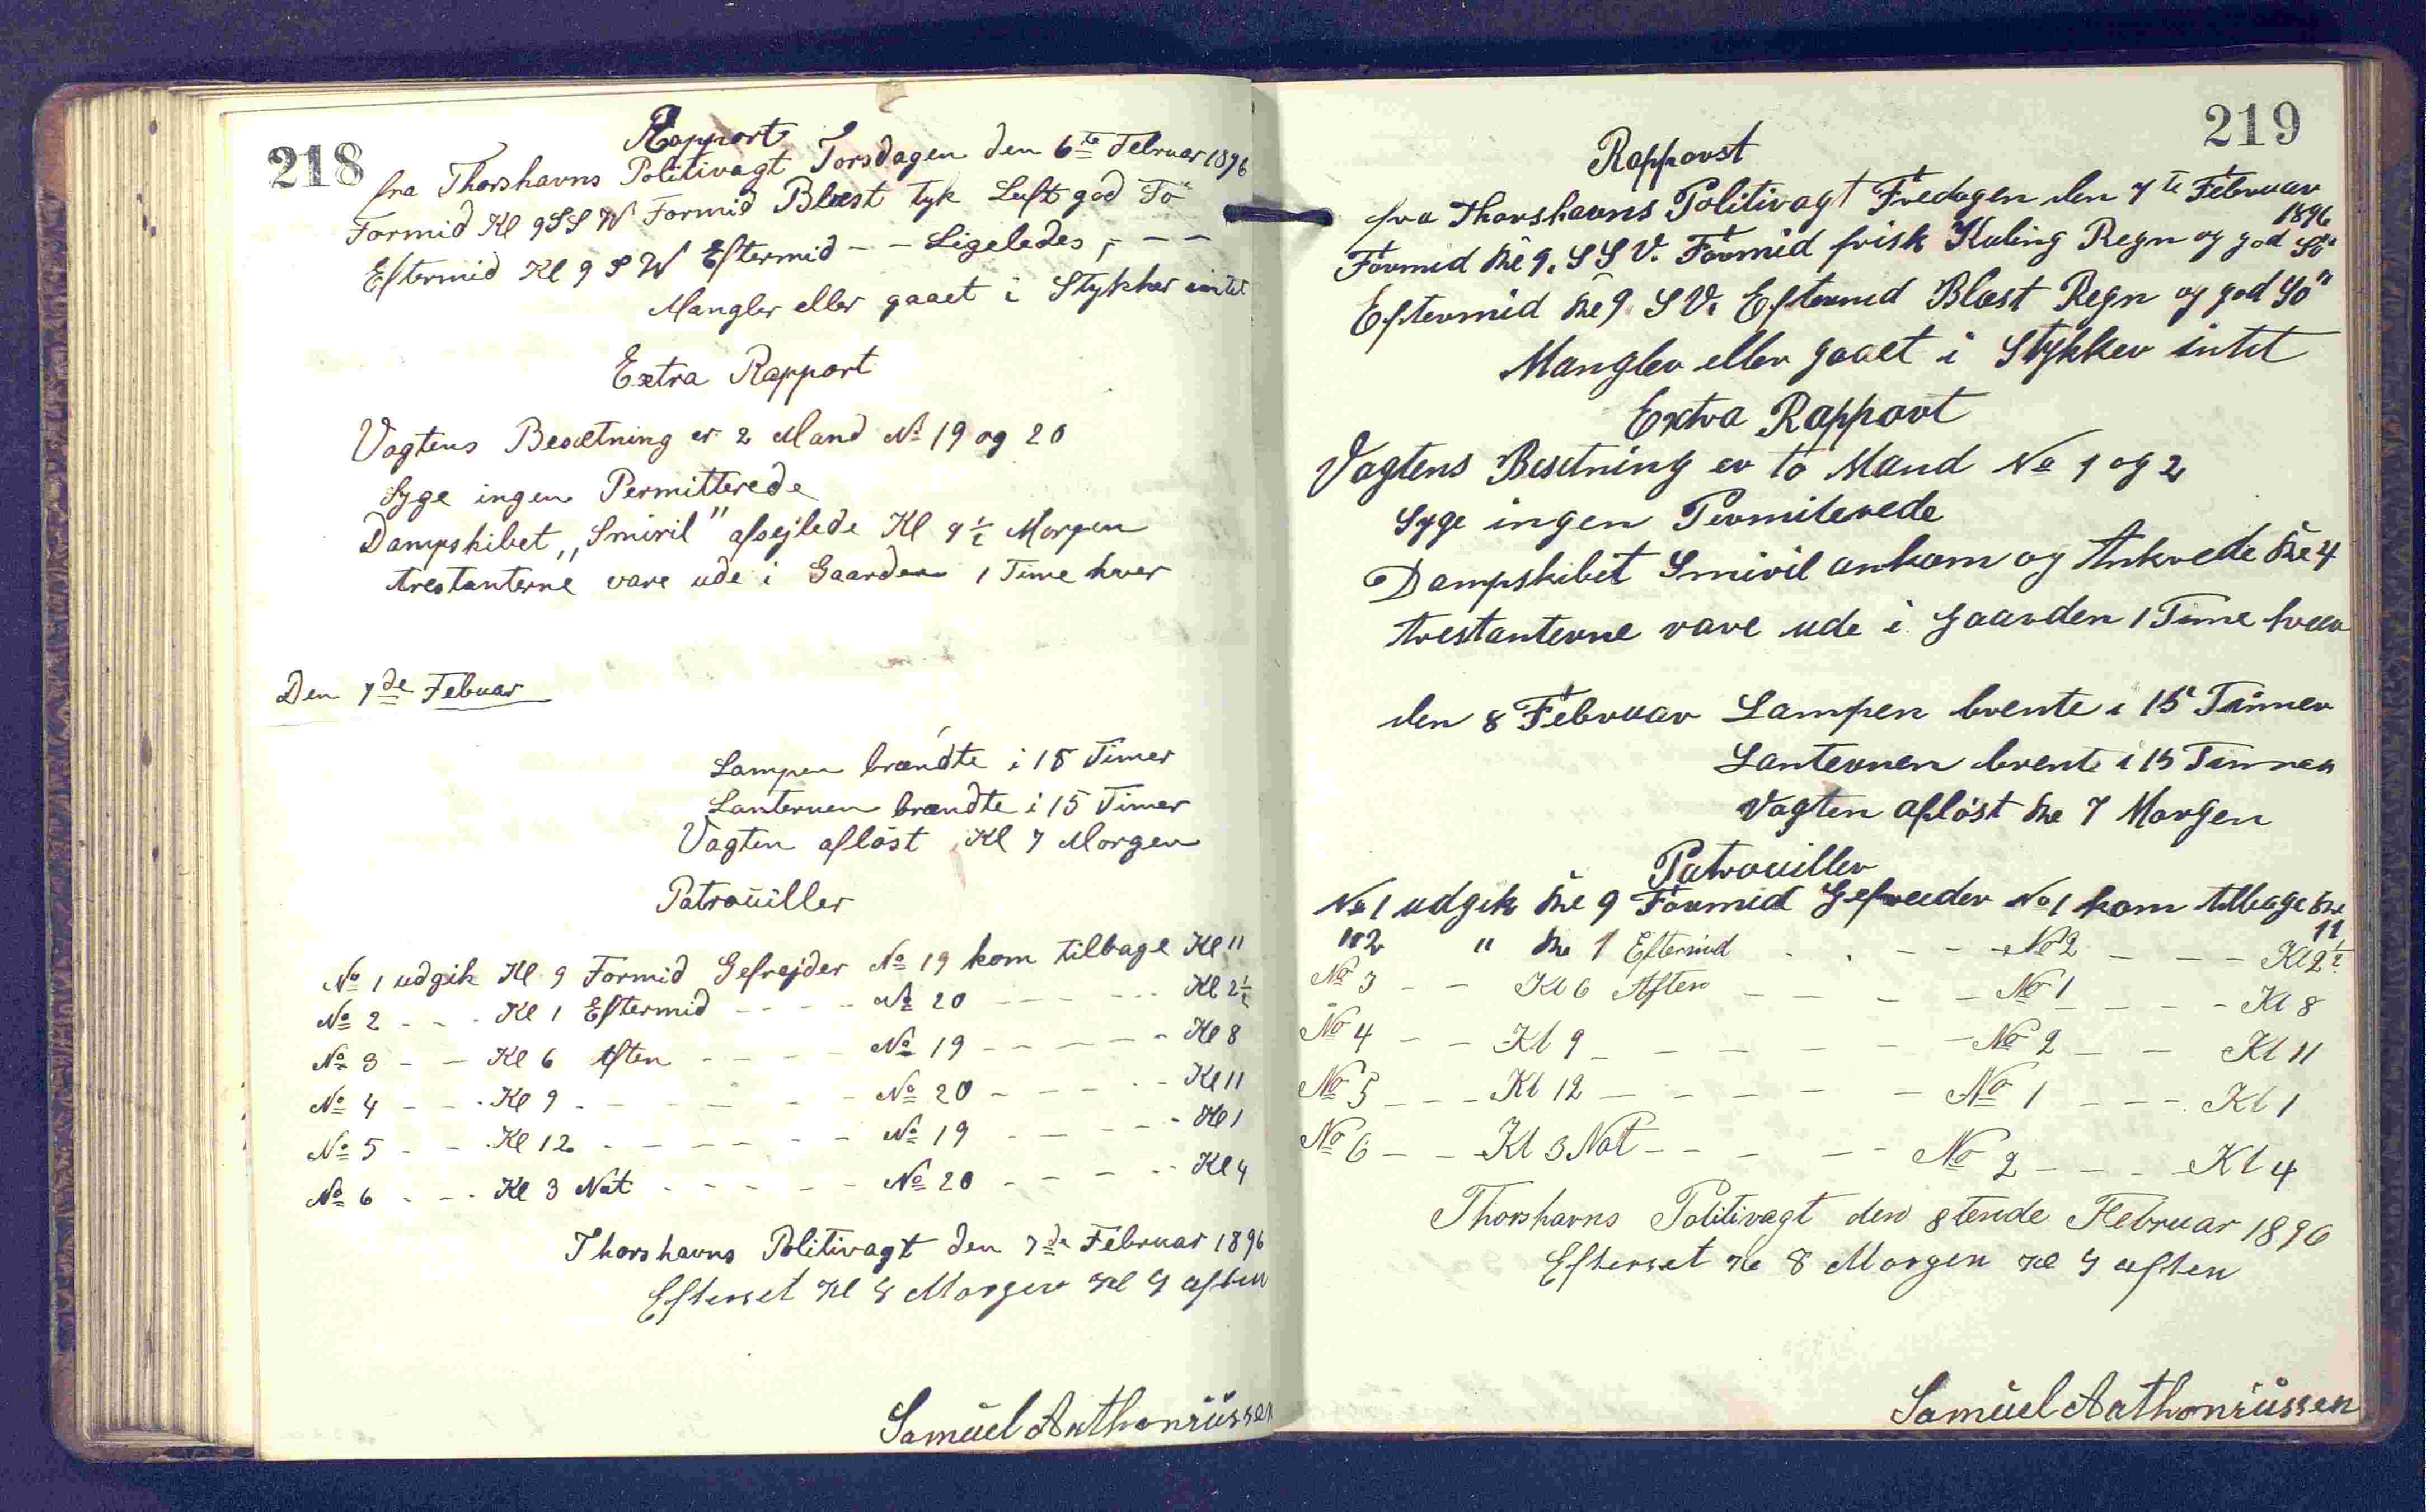 218
Rapport
fra Thorshavns Politivagt Torsdagen den 6te Februar 1896
Formid Kl 9 SSW Formid Blæst tyk Luft god Sö
Eftermid Kl 9 SW Eftermid - - Ligeledes, - - -
Mangler eller gaaet i Stykker intet
Extra Rapport
Vagtens Besætning er 2 Mand No 19 og 20
Syge ingen Permitterede
Dampskibet „Smiril" afsejlede Kl 9½ Morgen
Arestanterne vare ude i Gaarden 1 Time hver
Den 7de Febuar
Lampen brændte i 15 Timer
Lanternen brændte i 15 Timer
Vagten aflöst Kl 7 Morgen
Patrouiller
No 1 udgik Kl 9 Formid Gefrejder No 19 kom tilbage Kl 11
No 2 - - - Kl 1 Eftermid - - - - No 20 - - - - - - Kl 2½
No 3 - - Kl 6 Aften - - - - No 19 - - - - - - Kl 8
No 4 - - - Kl 9 - - - - - - No 20 - - - - - Kl 11
No 5 - - - Kl 12 - - - - - - No 19 - - - - - Kl 1
No 6 - - - Kl 3 Nat - - - - - No 20 - - - - - Kl 4
Thorshavns Politivagt den 7de Februar 1896
Efterset Kl 8 Morgen Kl 9 aften
Samüel Anthoniüssen
219
Rapport
fra Thorshavns Politivagt Fredagen den 7te Februar
1896
Formid Kl 9. SSV. Formid frisk Kuling Regn og god Sö
Eftermid Kl 9. SV. Eftermid Blæst Regn og god Sö
Mangler eller gaaet i Stykker intet
Extra Rapport
Vagtens Besetning er to Mand No 1 og 2
Syge ingen Permiterede
Dampskibet Smiril ankom og Ankrede Kl 4
Arestanterne vare ude i gaarden 1 Time hver
den 8 Februar Lampen brente i 15 Timer
Lanternen brente i 15 Timer
Vagten aflöst Kl 7 Morgen
Patrouiller
No 1 udgik Kl 9 Formid Gefreider No 1 kom tilbage Kl
11
No 2 " Kl 1 Eftermid - - - - No 2 - - - - Kl 2½
No 3 - - Kl 6 Aften - - - - No 1 - - - - Kl 8
No 4 - - Kl 9 - - - - - - No 2 - - Kl 11
No 5 - - - Kl 12 - - - - - No 1 - - - Kl 1
No 6 - - Kl 3 Nat - - - - - No 2 - - - Kl 4
Thorshavns Politivagt den 8tende Februar 1896
Efterset Kl 8 Morgen Kl 9 aften
Samüel Anthoniüssen